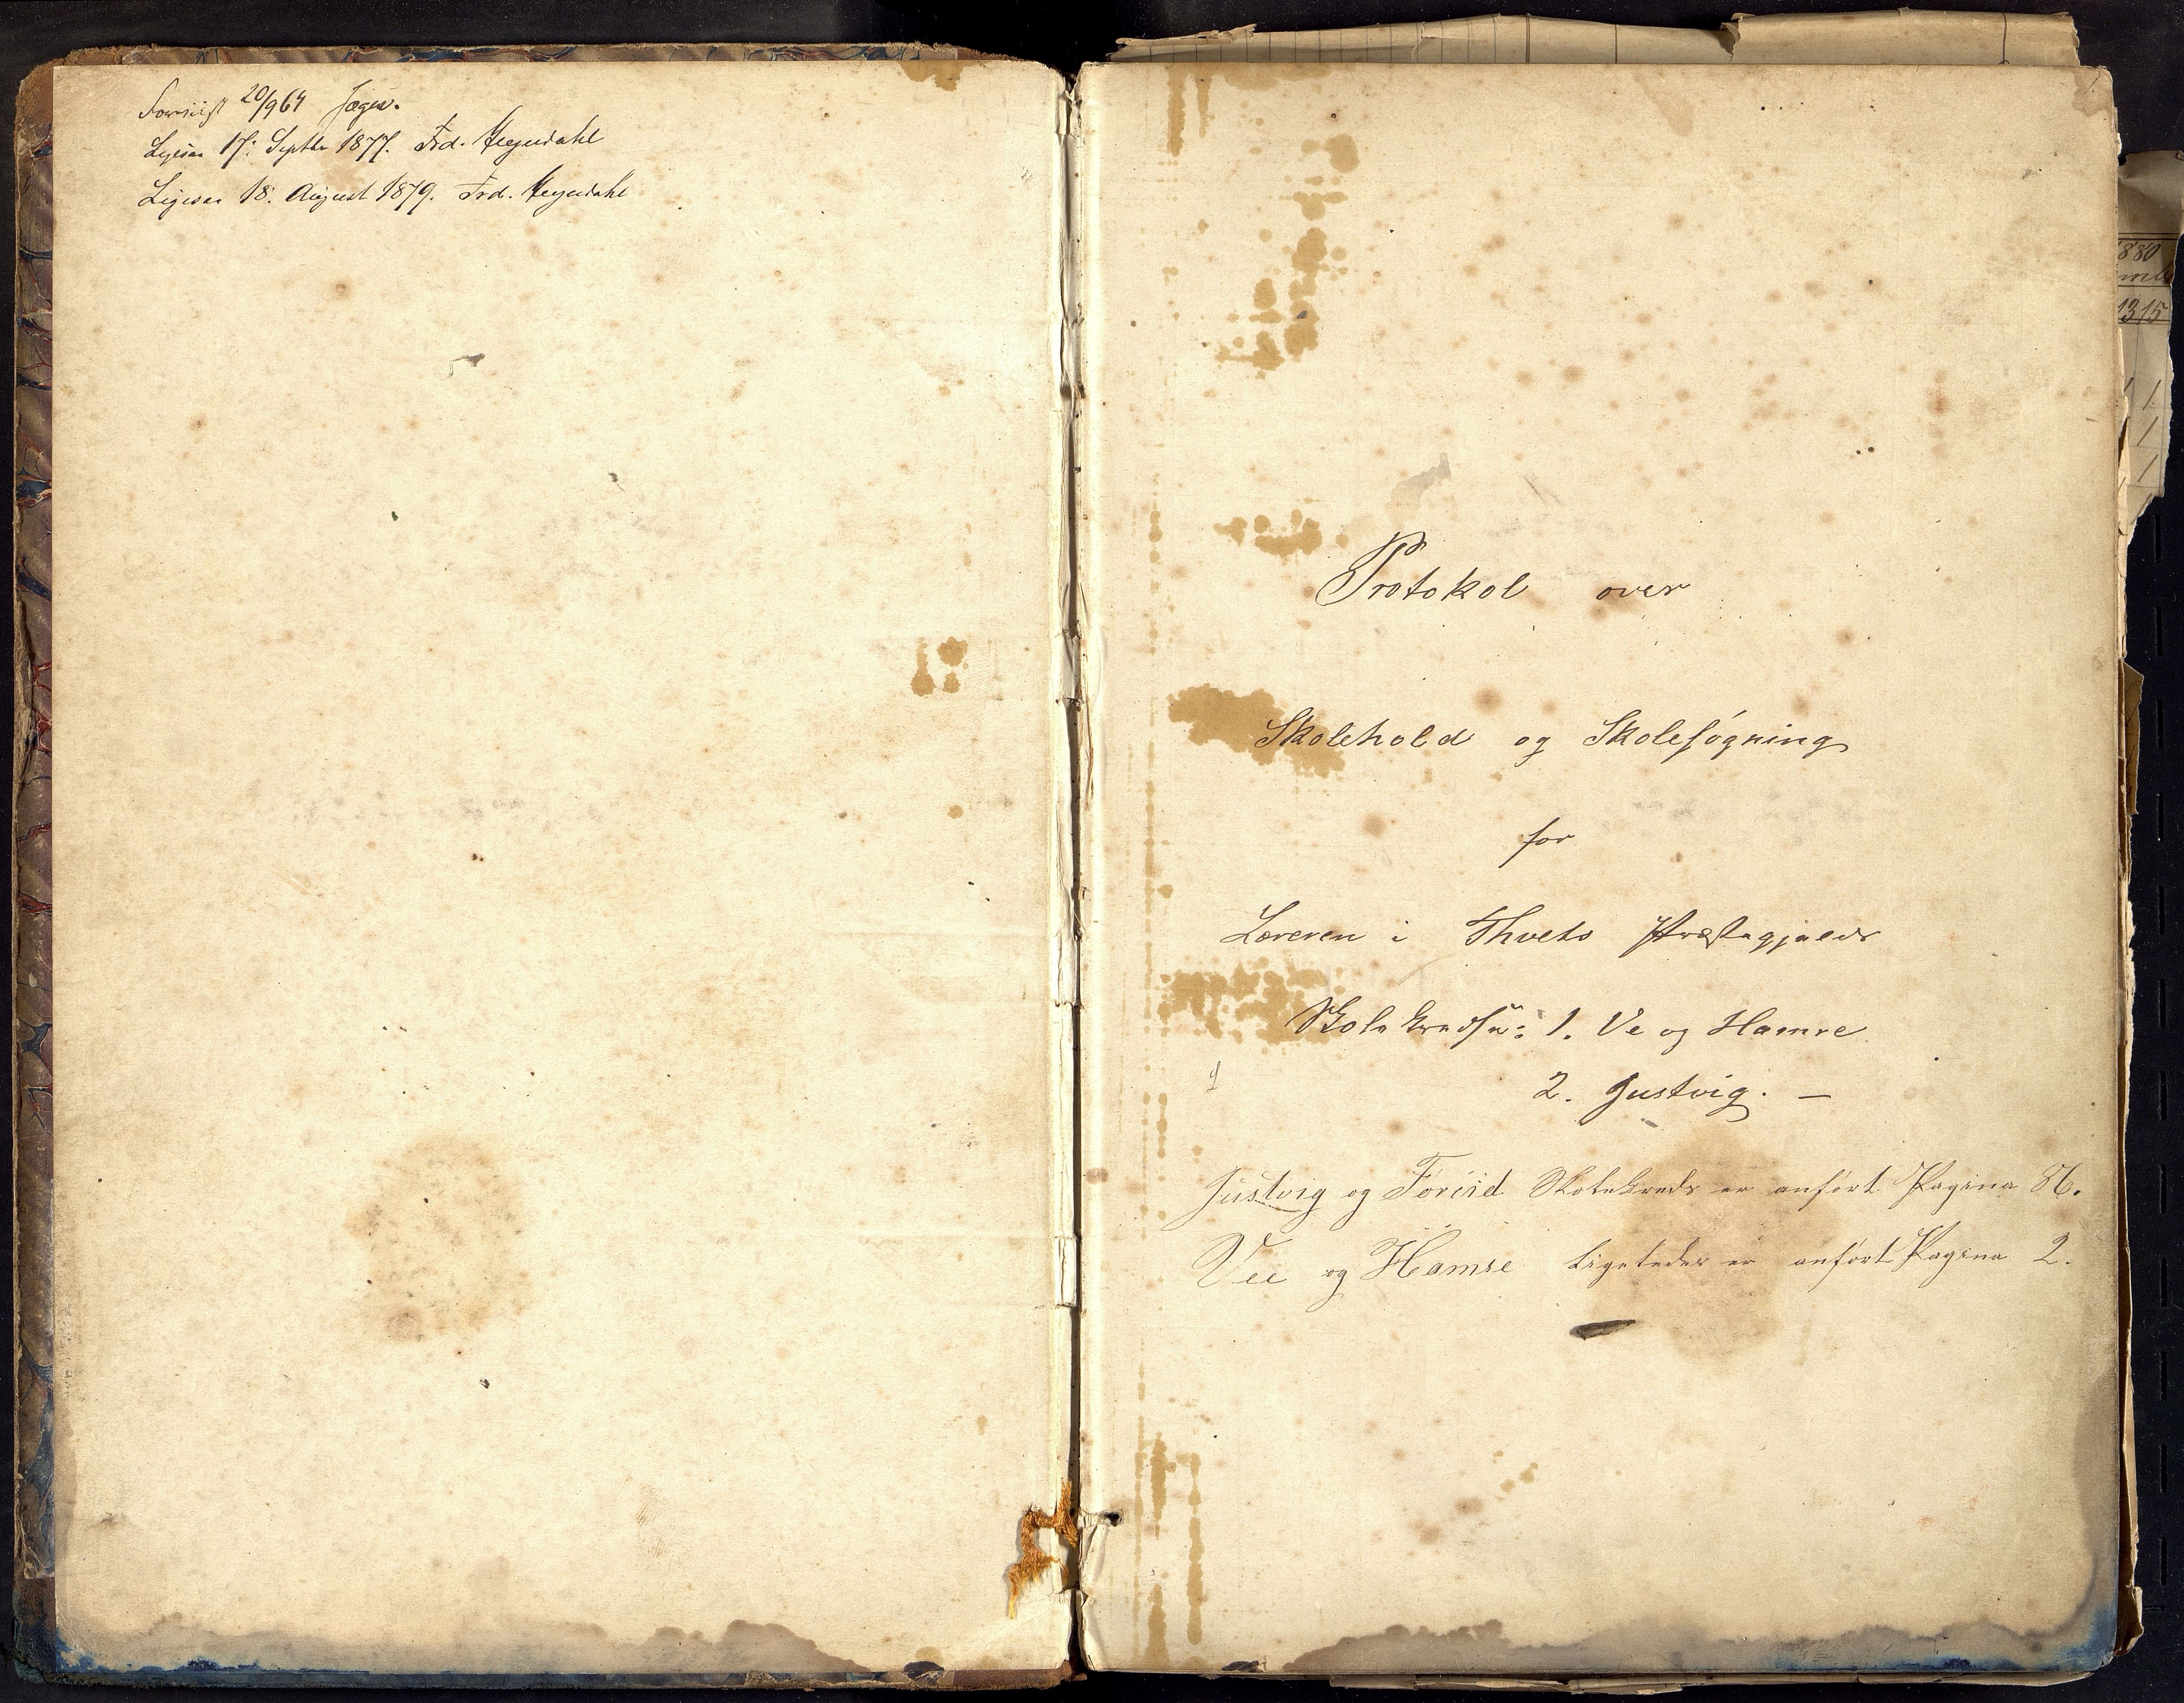 Foreviist 20/9 64 Jæger.
Ligesaa 17: Septbr 1877. Frd. Heyerdahl
Ligesaa 18. August 1879. Frd. Heyerdahl
Protokol over
Skolehold og Skolesøgning
for
Læreren i Thvets Præstegjelds
Skolekredse: 1. Ve og Hamre
2. Justvig. —
Justvig og Føreid Skolekreds er anført Pagina 86.
Vee og Hamre ligeledes er anført Pagina 2.
1880
1315